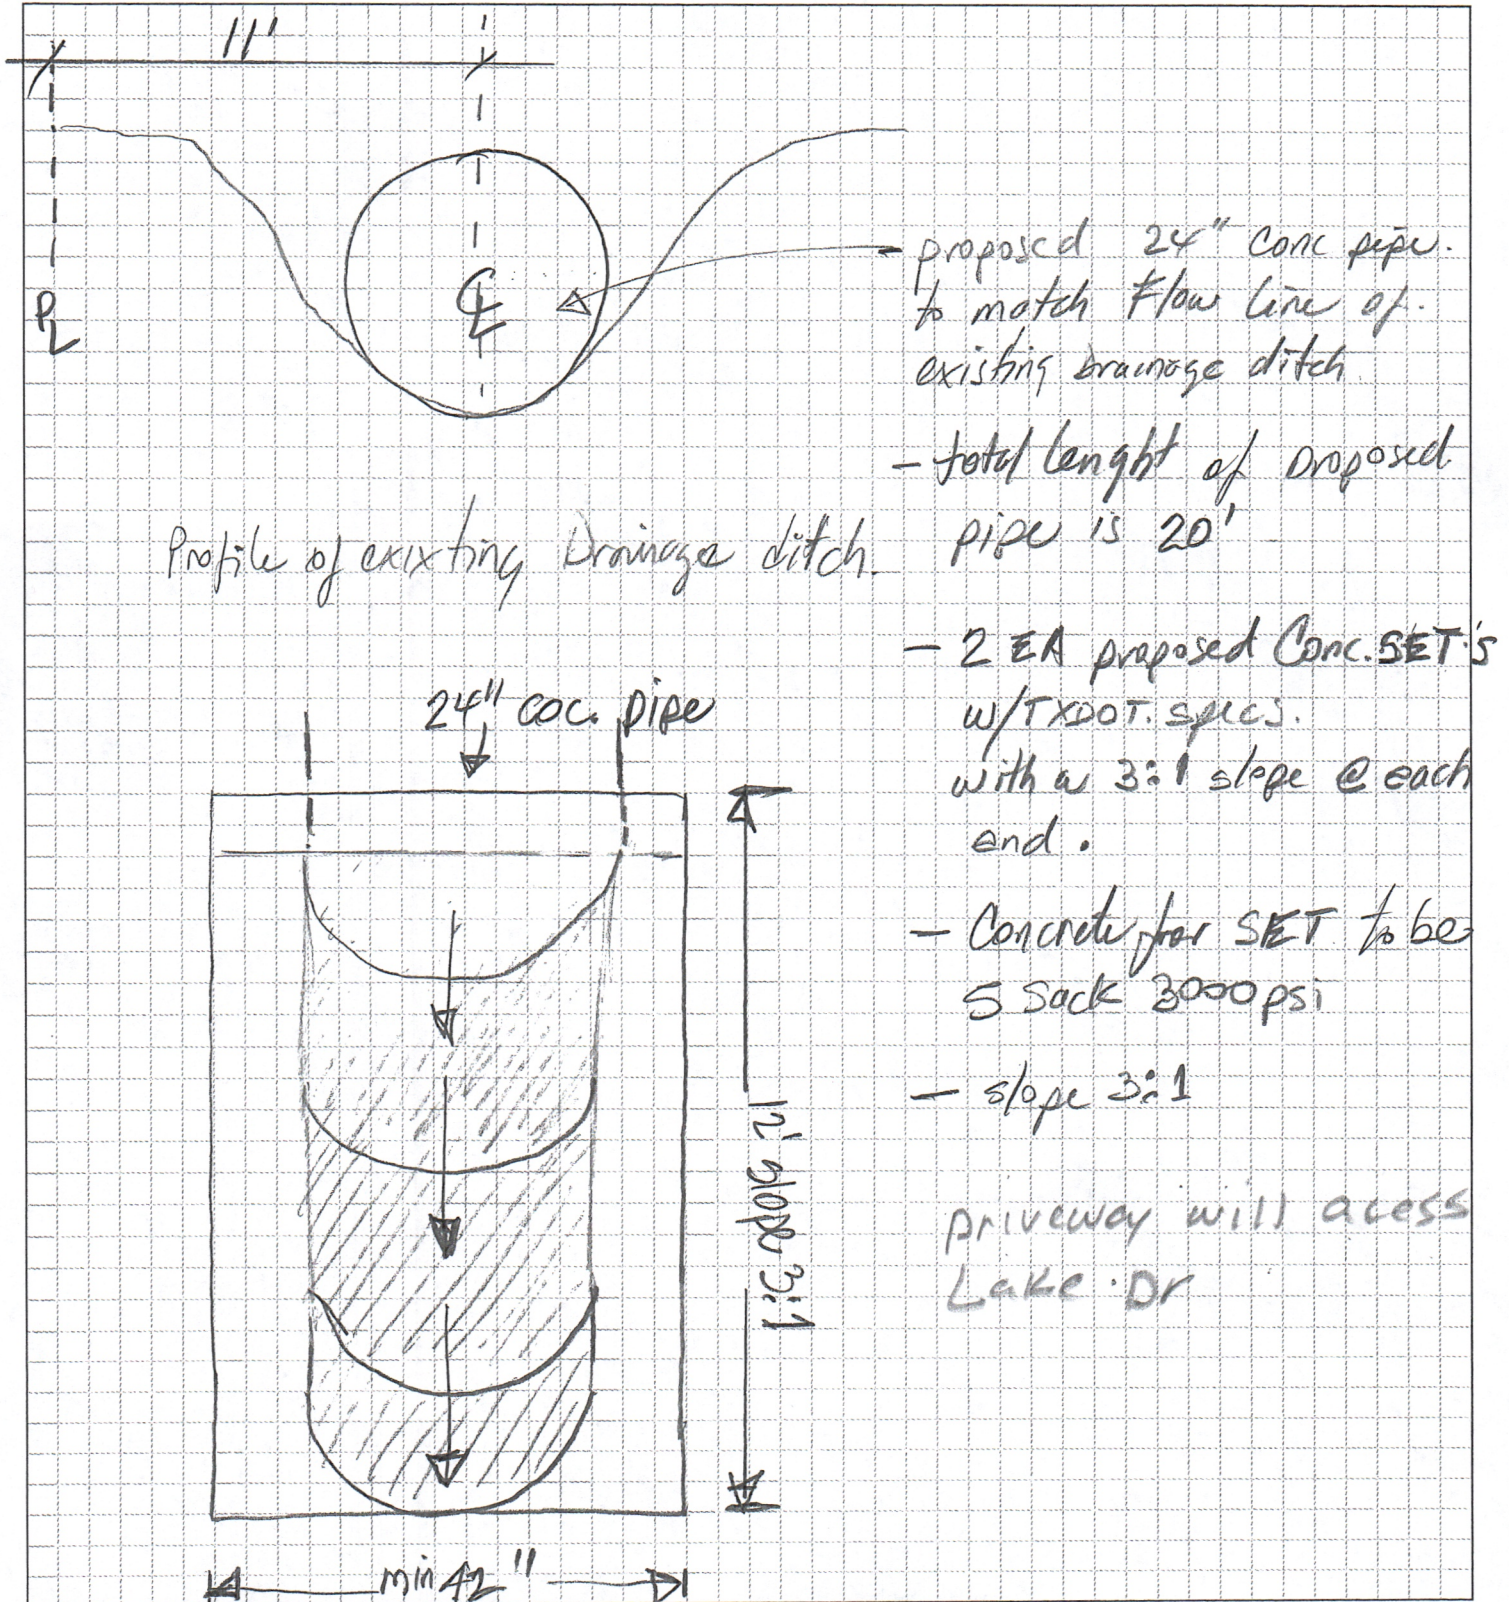 11'
PL
CL
proposed 24" Conc pipe.
to match Flow line of.
existing Drainage ditch
- total lenght of proposed
pipe is 20'
Profile of exixting Drainage ditch.
- 2 EA proposed Conc. SET's
w/TXDOT. specs.
with a 3:1 slope @ each
end.
24" coc. pipe
- Concrete for SET to be
5 Sack 3000psi
- slope 3:1
12' slope 3:1
Driveway will acess
Lake Dr
min 42"